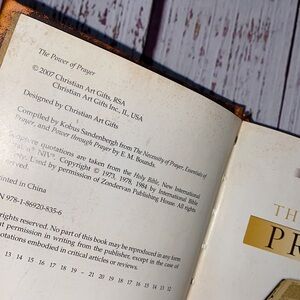 The Power of Prayer
© 2007 Christian Art Gifts, RSA
Christian Art Gifts Inc., IL, USA
Designed by Christian Art Gifts
Compiled by Kobus Sandenbergh from The Necessity of Prayer, Essentials of
Prayer, and Power through Prayer by E. M. Bounds.
quotations are taken from the Holy Bible, New International
NIV®. Copyright © 1973, 1978, 1984 by International Bible
Used by permission of Zondervan Publishing House. All rights
rinted in China
N 978-1-86920-835-6
ights reserved. No part of this book may be reproduced in any form
t permission in writing from the publisher, except in the case of
otations embodied in critical articles or reviews.
13 14 15 16 17 18 19 – 21 20 19 18 17 16 15 14 13 12
TH
PR